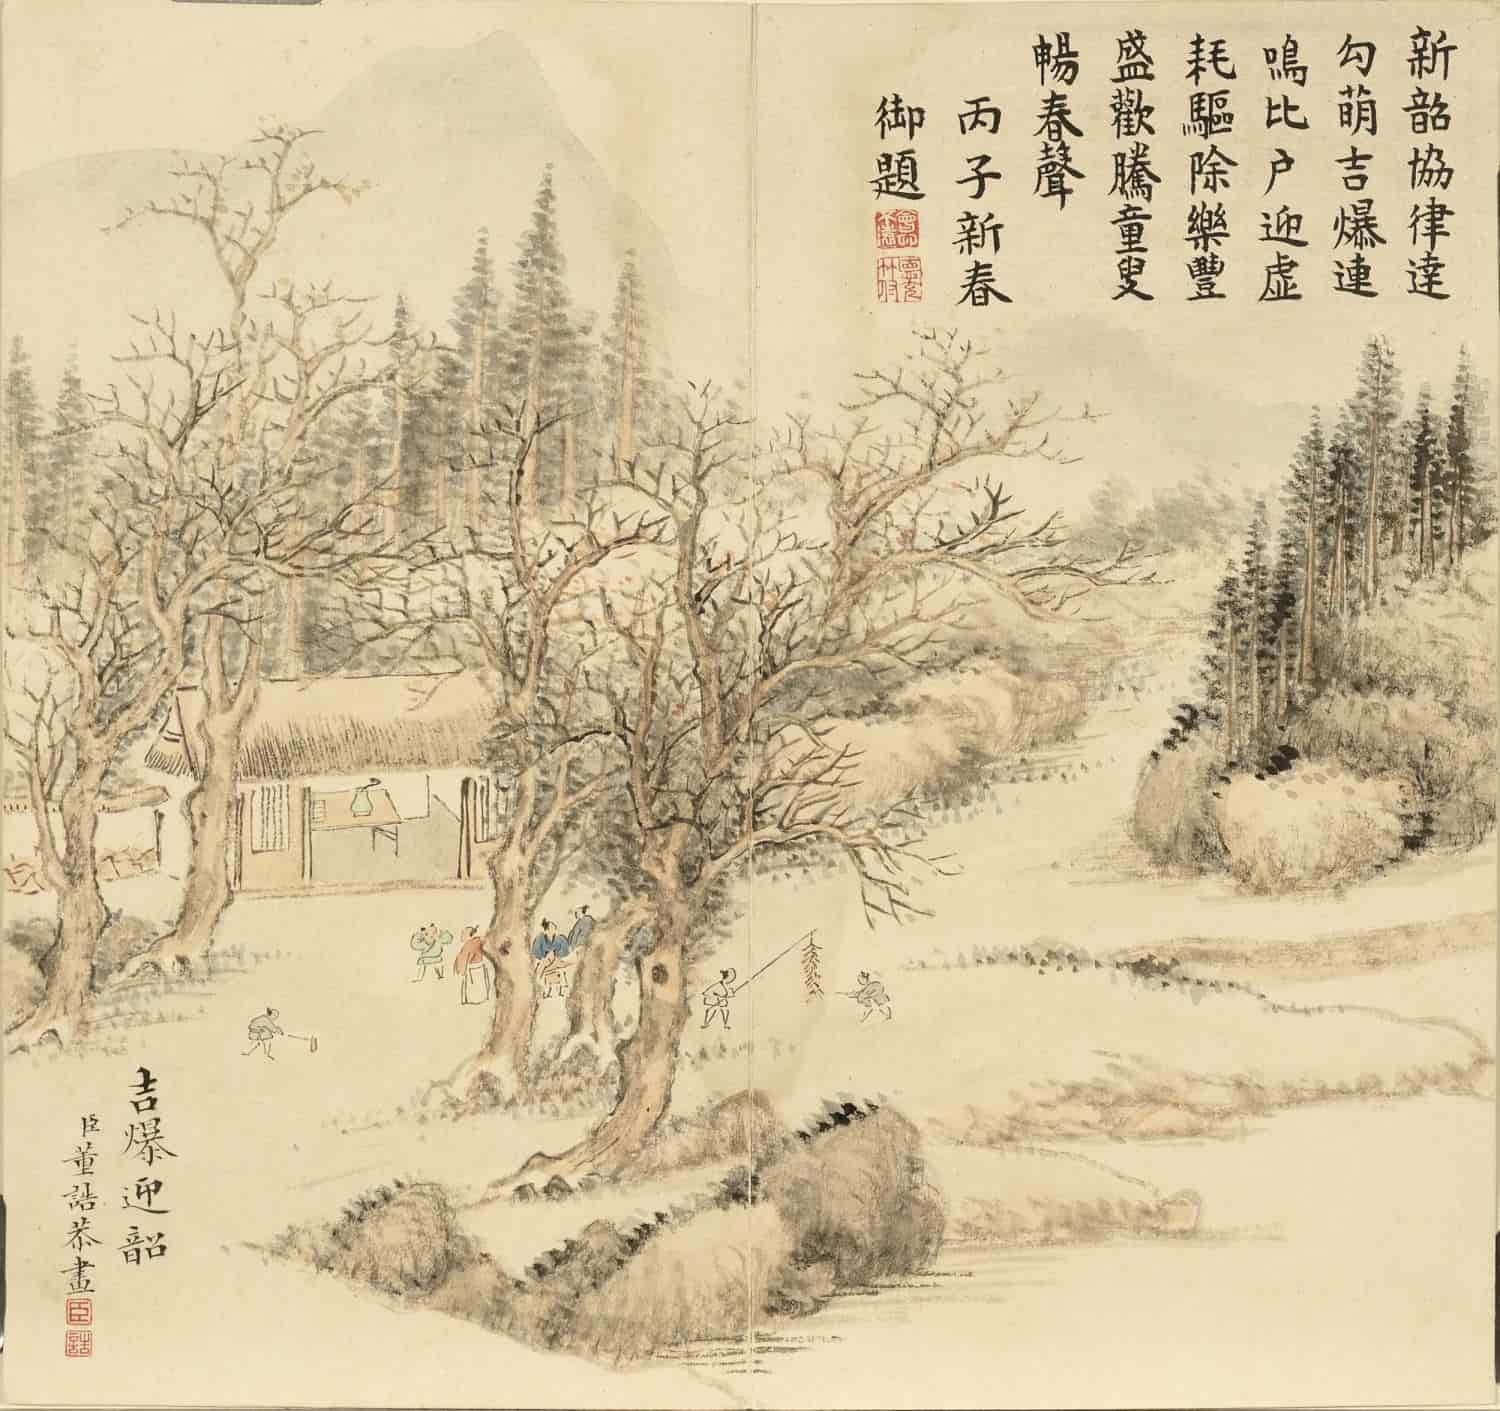 新韶協律達
勾萌吉爆連
鳴比户迎虛
耗驅除樂豐
盛歡騰童叟
暢春聲
丙子新春
御題
吉爆迎韶
臣董誥恭畫
臣
誥